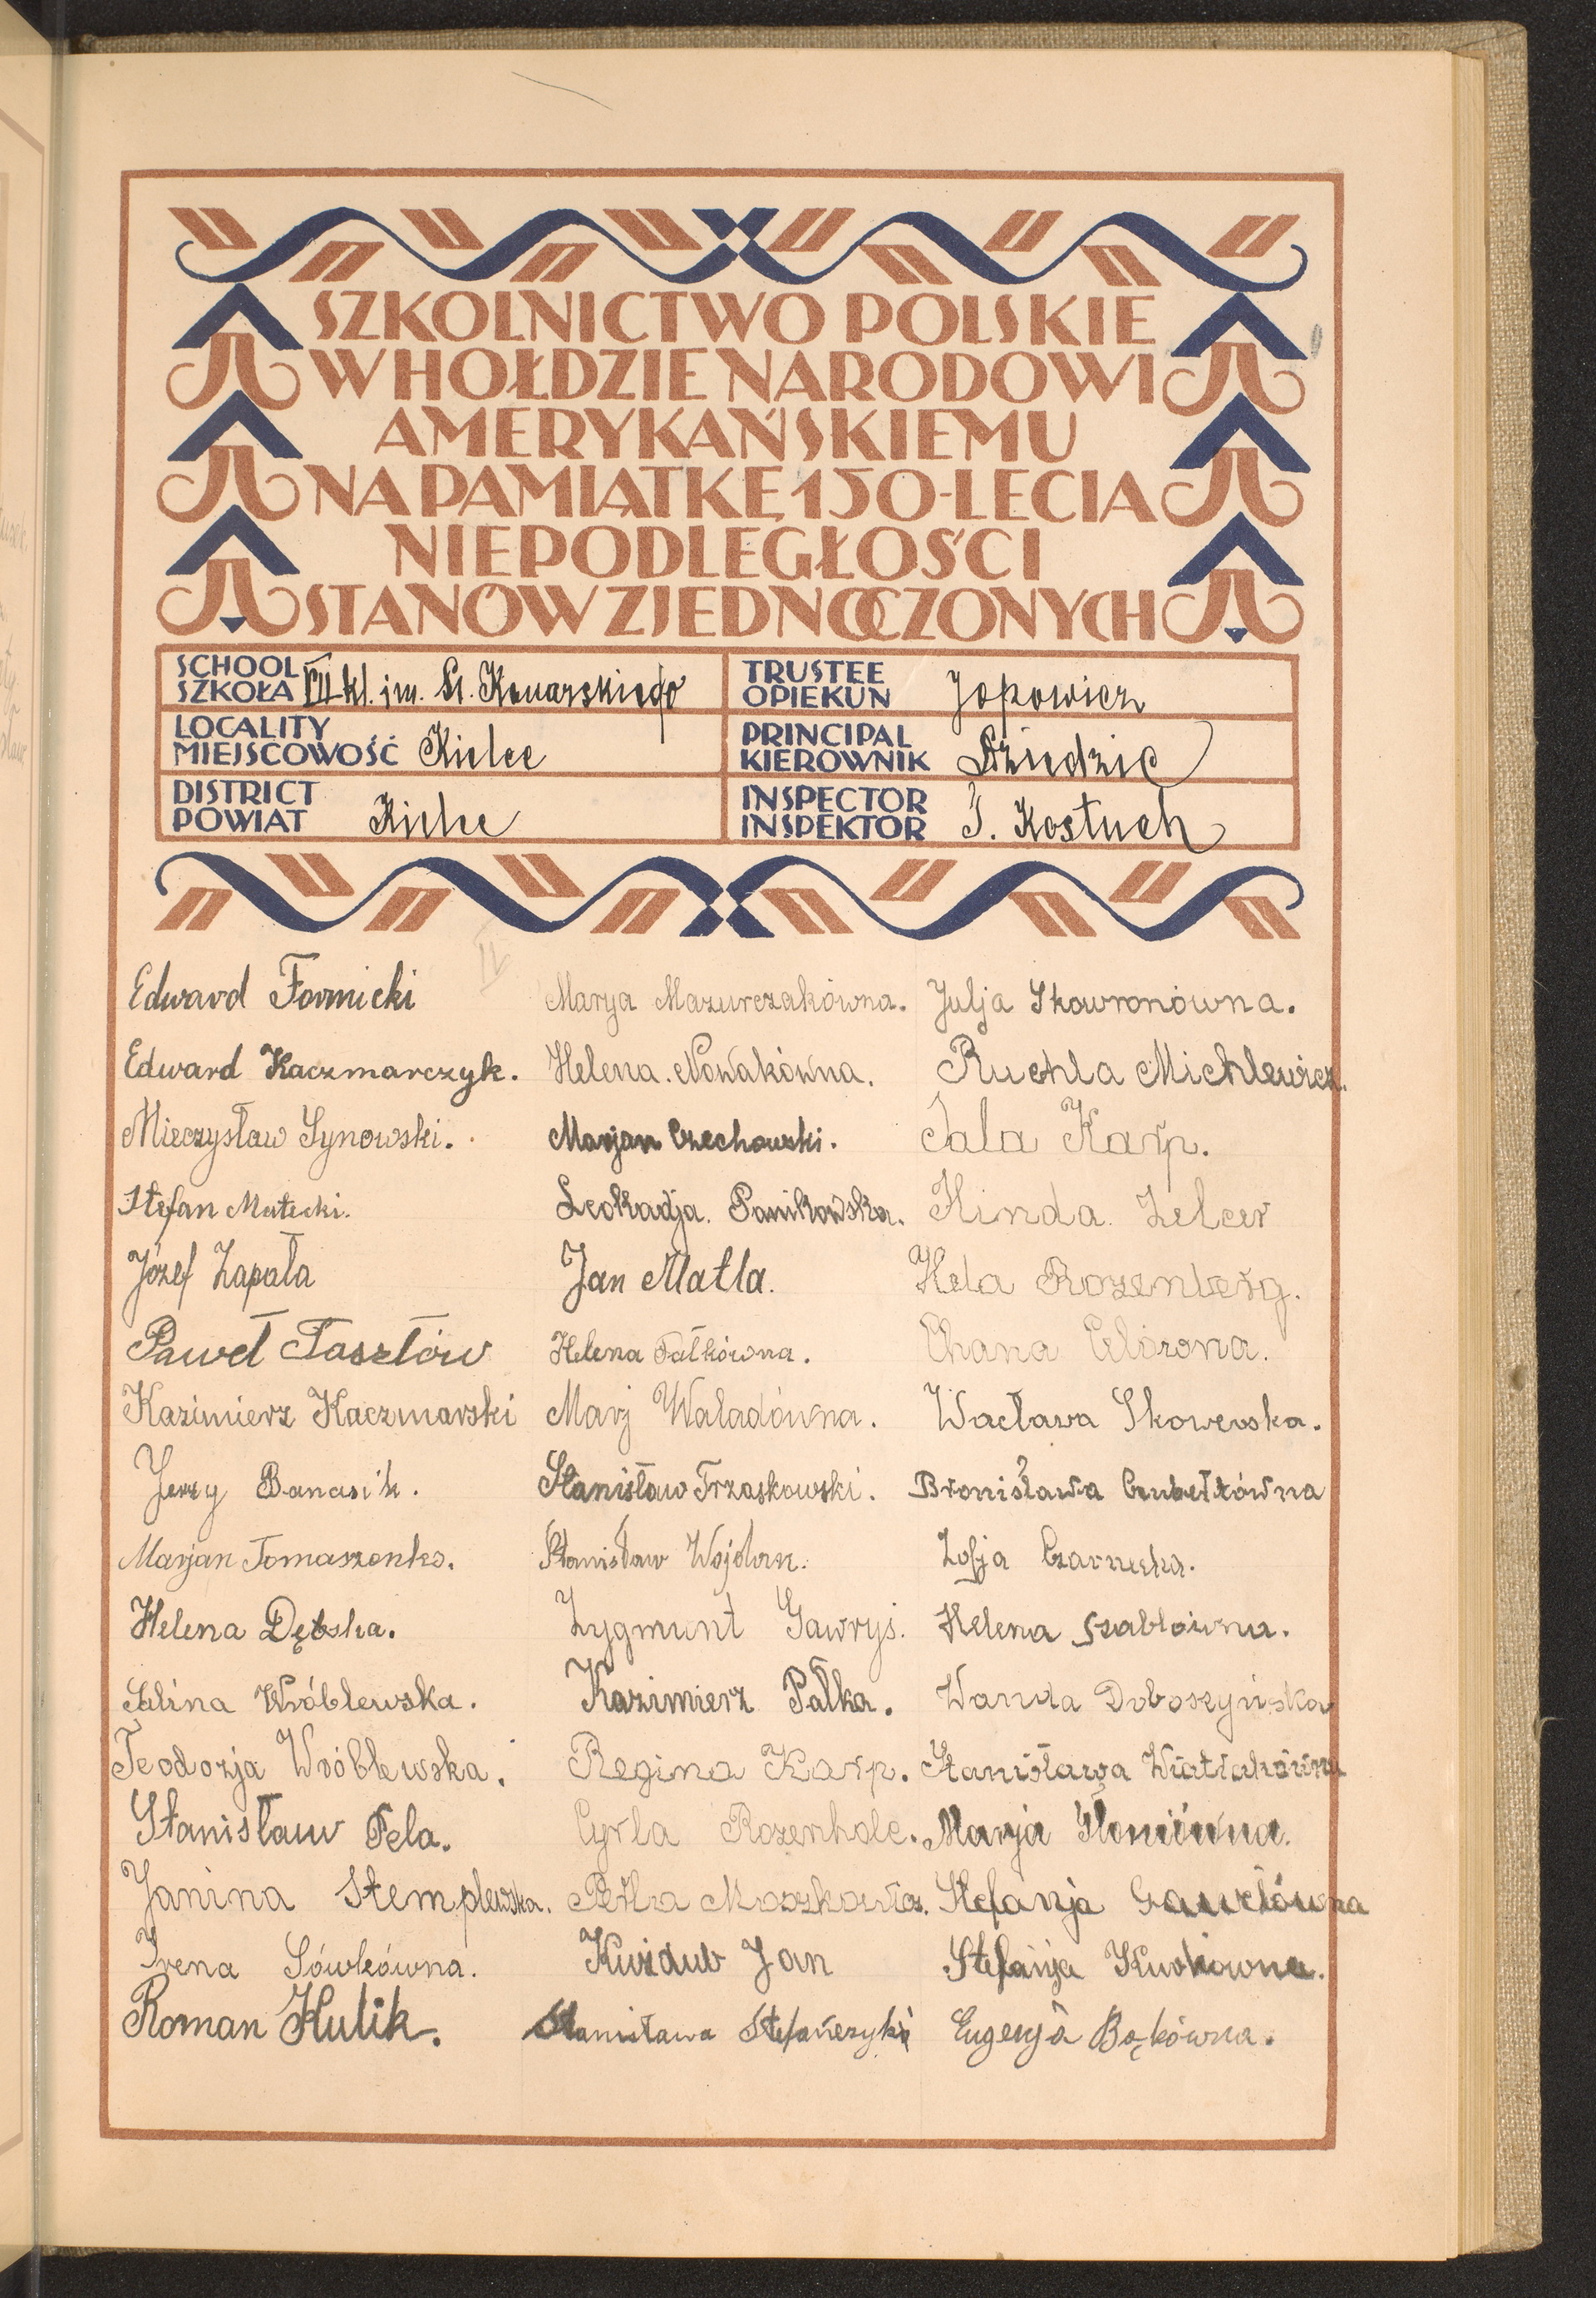 SZKOLNICTWO POLSKIE
W HOŁDZIE NARODOWI
AMERYKAŃSKIEMU
NA PAMIĄTKĘ 150-LECIA
NIEPODLEGŁOŚCI
STANÓW ZJEDNOCZONYCH
SCHOOL
SZKOŁA VII kl. im. St. Konarskiego
TRUSTEE
OPIEKUN Jopowicz
LOCALITY
MIEJSCOWOŚĆ Kielce
PRINCIPAL
KIEROWNIK Dziedzic
DISTRICT
POWIAT Kielce
INSPECTOR
INSPEKTOR J. Kostuch
IV
Edward Fornicki
Edward Kaczmarczyk.
Mieczysław Synowski.
Stefan Matecki.
Józef Zapała
Paweł Tasztów
Kazimierz Kaczmarski
Jerzy Banasik.
Marjan Tomaszenko.
Helena Dębska.
Wróblewska.
Teodozja Wróblewska.
Stanisław Pela.
Janina Stemplewska.
Irena Sówkówna.
Roman Hulik.
Marya Mazurczakówna.
Helena Nowakówna.
Marjan Czechowski.
Leokadja Panikowska.
Jan Matla.
Helena Fałkówna.
Marj Waladówna.
Stanisław Trzaskowski.
Stanisław
Zygmunt Gawryś.
Kazimierz Pałka.
Regina Karp.
Cyrla Rozenholc.
Perla Moszkowicz.
Kuzdub Jan
Stanisława
Julja Skowronówna.
Ruchla Michlewicz.
Sala Karp.
Hinda Zelcer
Hela Rozenberg.
Chana
Wacława Skowerska.
Bronisława
Zofja Czarnecka.
Helena Szablówna.
Wanda Doboszyńska
Stanisława
Marja Słoniówna.
Stefanja Gawełówna
Stefanja
Eugenja Bąkówna.